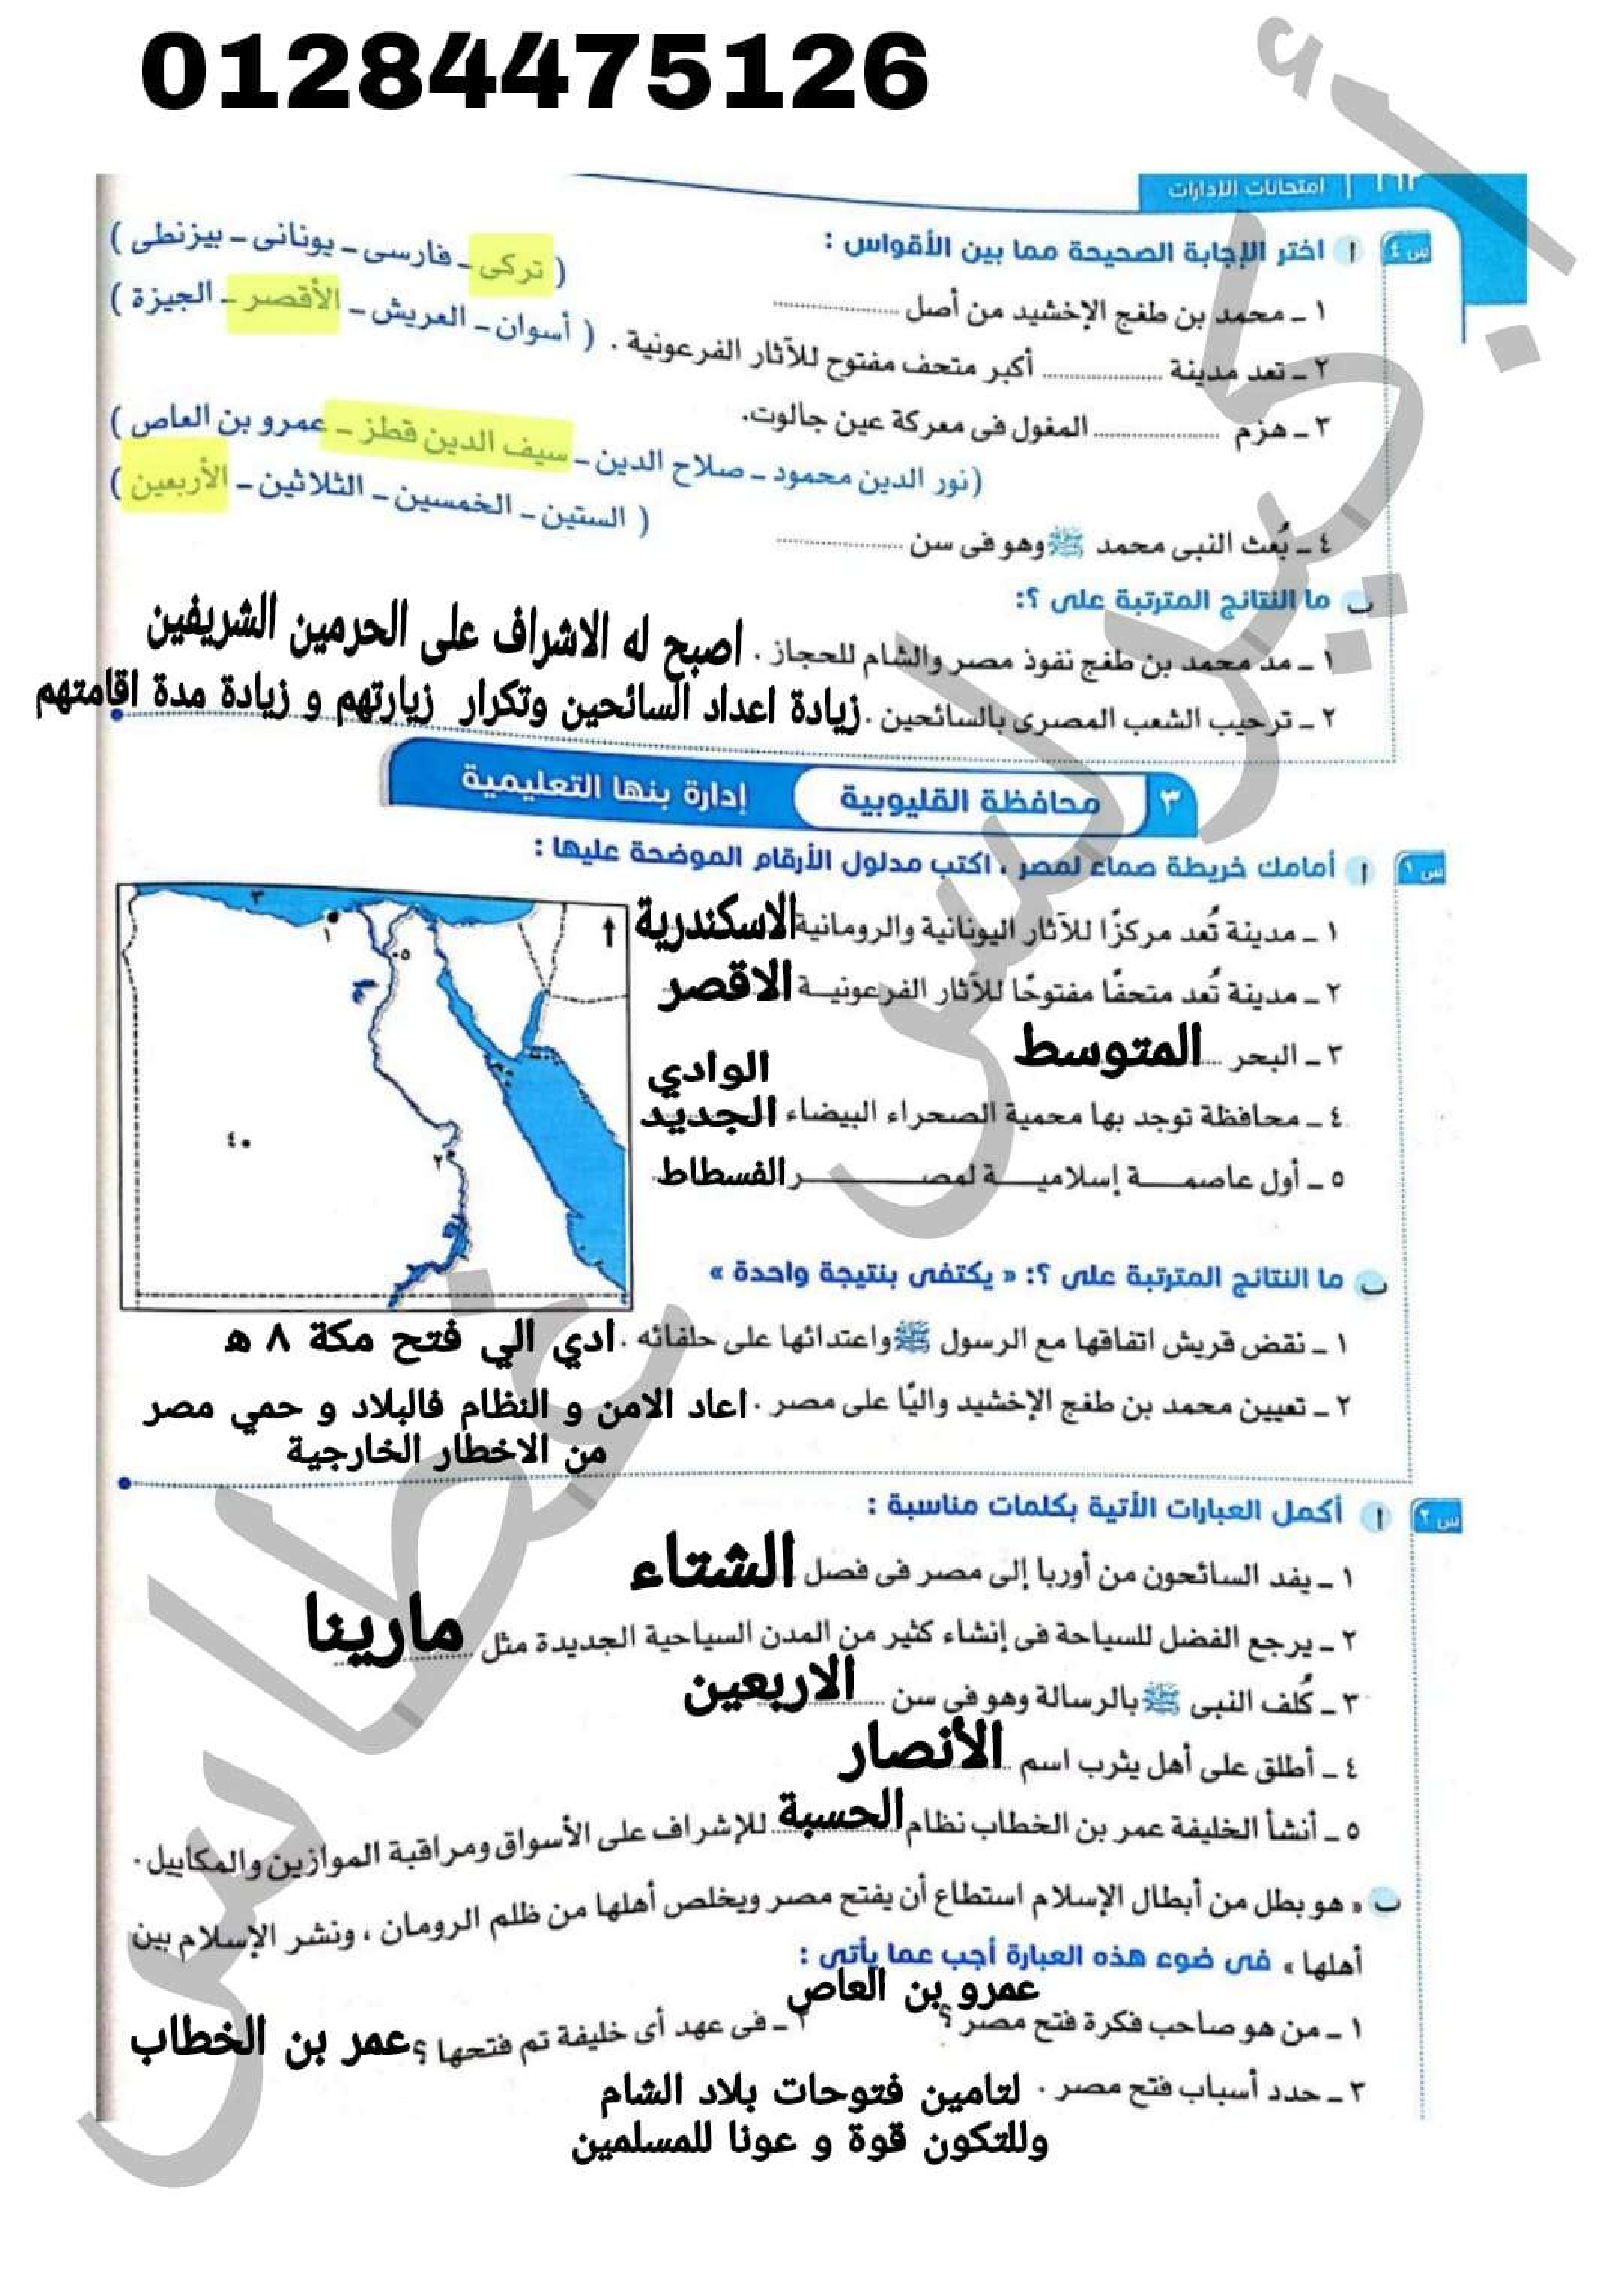 01284475126
امتحانات الإدارات
س٤ أ اختر الإجابة الصحيحة مما بين الأقواس :
١ ـ محمد بن طغج الإخشيد من أصل ............ ( تركى ـ فارسى ـ يونانى ـ بيزنطى )
٢ ـ تعد مدينة ............ أكبر متحف مفتوح للآثار الفرعونية . ( أسوان ـ العريش ـ الأقصر ـ الجيزة )
٣ ـ هزم ............ المغول فى معركة عين جالوت.
(نور الدين محمود ـ صلاح الدين ـ سيف الدين قطز ـ عمرو بن العاص )
٤ ـ بُعث النبى محمد ﷺ وهو فى سن ............ ( الستين ـ الخمسين ـ الثلاثين ـ الأربعين )
ب ما النتائج المترتبة على ؟:
١ ـ مد محمد بن طغج نفوذ مصر والشام للحجاز . اصبح له الاشراف على الحرمين الشريفين
٢ ـ ترحيب الشعب المصرى بالسائحين . زيادة اعداد السائحين وتكرار زيارتهم و زيادة مدة اقامتهم
٣ محافظة القليوبية إدارة بنها التعليمية
س١ أ أمامك خريطة صماء لمصر ، اكتب مدلول الأرقام الموضحة عليها :
١ ـ مدينة تُعد مركزًا للآثار اليونانية والرومانية الاسكندرية
٢ ـ مدينة تُعد متحفًا مفتوحًا للآثار الفرعونيـة الاقصر
٣ ـ البحر المتوسط
٤ ـ محافظة توجد بها محمية الصحراء البيضاء الوادي الجديد
٥ ـ أول عاصمـة إسلاميـة لمصـر الفسطاط
٣
١
٥
٤
٢
ب ما النتائج المترتبة على ؟: « يكتفى بنتيجة واحدة »
١ ـ نقض قريش اتفاقها مع الرسول ﷺ واعتدائها على حلفائه . ادي الي فتح مكة ٨ ه
٢ ـ تعيين محمد بن طغج الإخشيد واليًا على مصر . اعاد الامن و النظام فالبلاد و حمي مصر
من الاخطار الخارجية
س٢ أ أكمل العبارات الآتية بكلمات مناسبة :
١ ـ يفد السائحون من أوربا إلى مصر فى فصل الشتاء
٢ ـ يرجع الفضل للسياحة فى إنشاء كثير من المدن السياحية الجديدة مثل مارينا
٣ ـ كُلف النبى ﷺ بالرسالة وهو فى سن الاربعين
٤ ـ أطلق على أهل يثرب اسم الأنصار
٥ ـ أنشأ الخليفة عمر بن الخطاب نظام الحسبة للإشراف على الأسواق ومراقبة الموازين والمكاييل .
ب « هو بطل من أبطال الإسلام استطاع أن يفتح مصر ويخلص أهلها من ظلم الرومان ، ونشر الإسلام بين
أهلها » فى ضوء هذه العبارة أجب عما يأتى :
عمرو بن العاص
١ ـ من هو صاحب فكرة فتح مصر ؟ ٢ ـ فى عهد أى خليفة تم فتحها ؟ عمر بن الخطاب
٣ ـ حدد أسباب فتح مصر . لتامين فتوحات بلاد الشام
وللتكون قوة و عونا للمسلمين